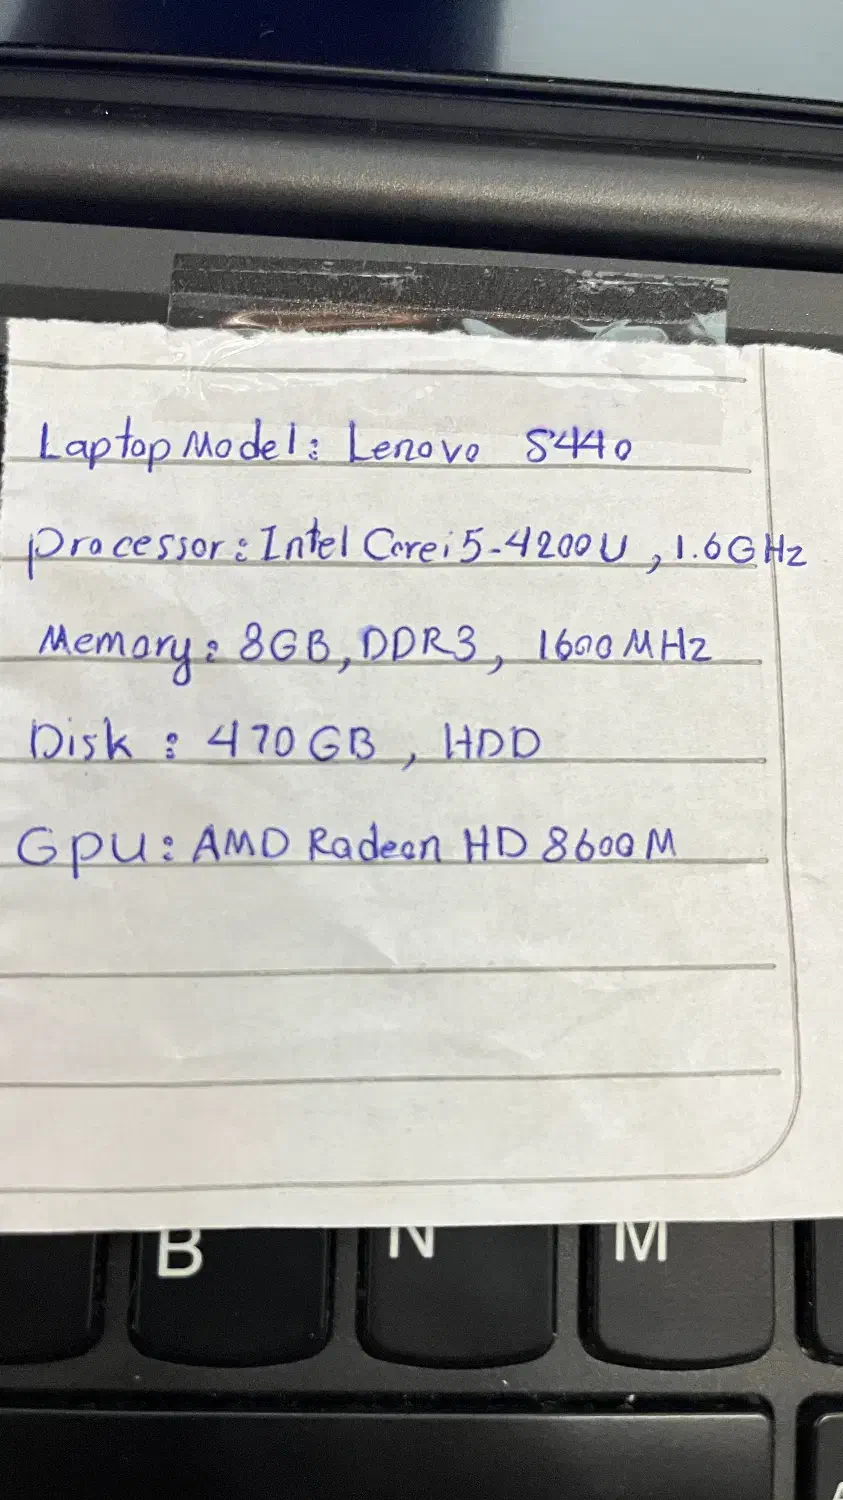 Laptop Model: Lenovo S440
Processor: Intel Core i5-4200U, 1.6GHz
Memory: 8GB, DDR3, 1600MHz
Disk: 470GB, HDD
GPU: AMD Radeon HD 8600M
B N M